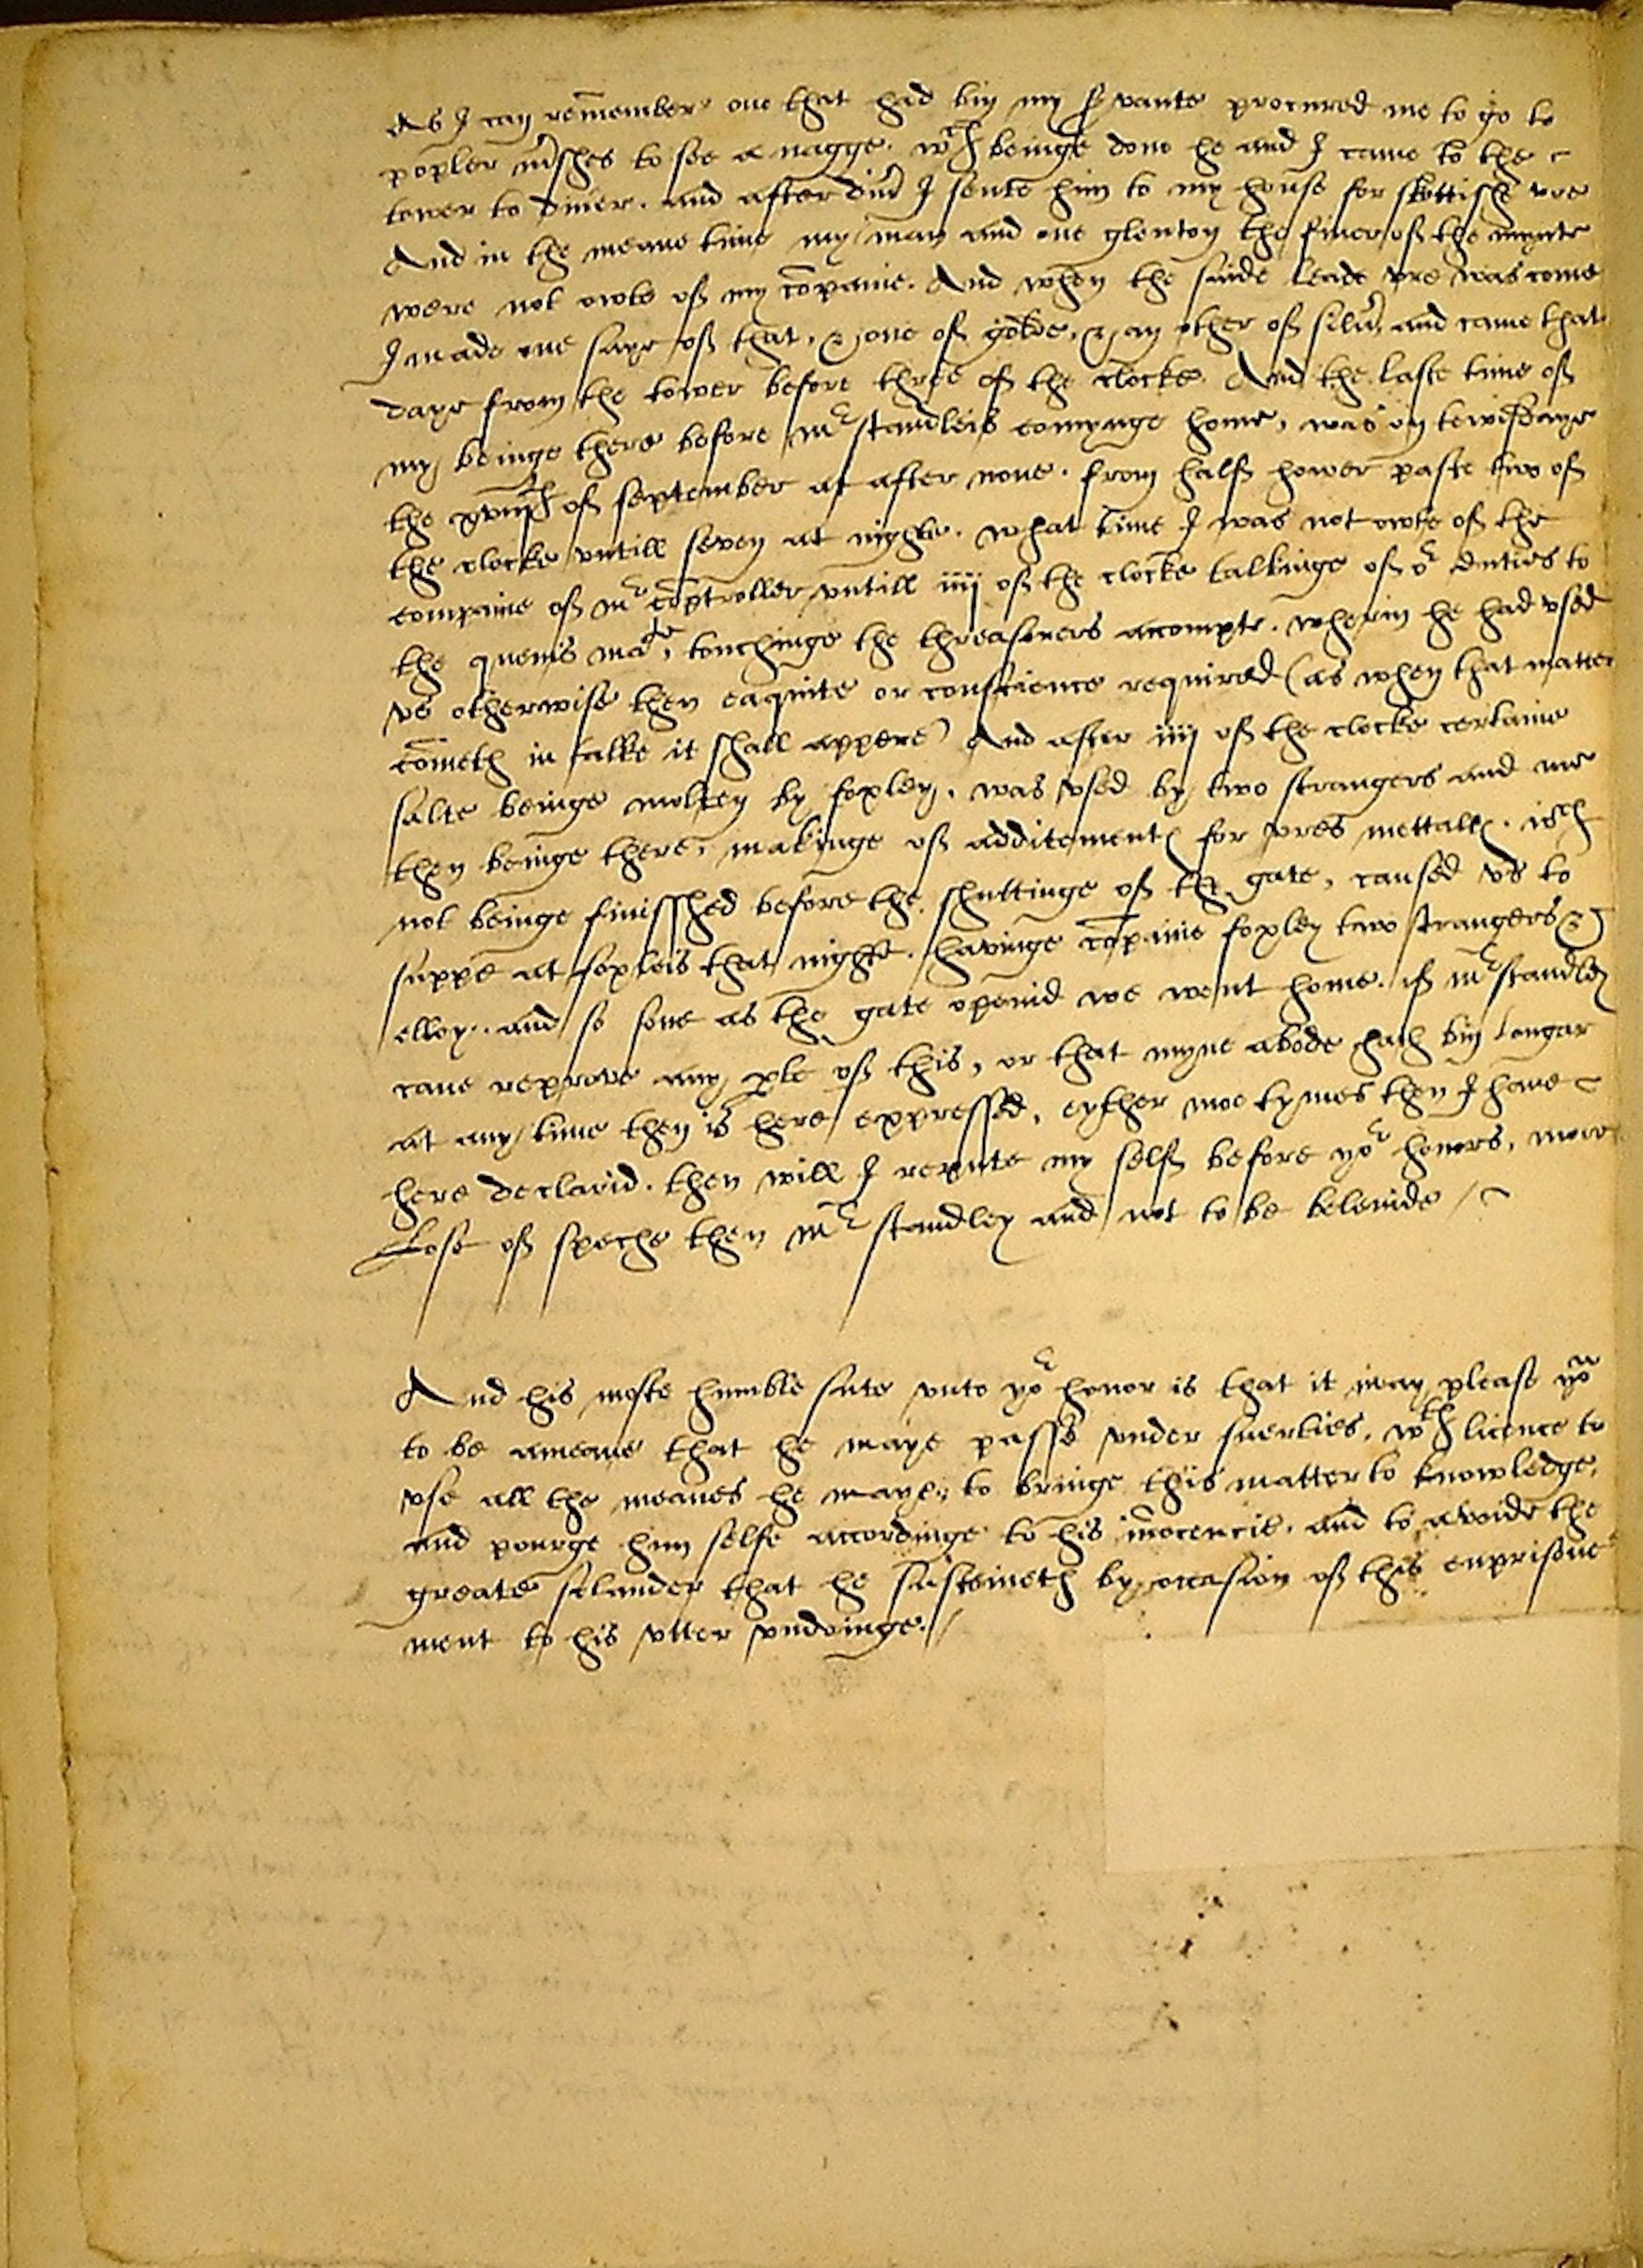 As I can remember one that had bin my s'vante procured me to go to
popler m'shes to see a nagge. wch beinge done he and I came to the
tower to diner. and after din' I sente him to my house for skottishe vre
And in the meane time my man and one glenton the finer of the mynte
were not owte of my cōpanie. And when the saide leade vre was come
I made one saye of that, & one of golde, & an other of silu', and came that
daye from the tower before three of the clocke. And the laste time of
my beinge there before mr standleis comynge home, was on tewisdaye
the xviijth of september at after none. from half hower paste two of
the clocke vntill seven at nighte. what time I was not owte of the
companie of mr cōptroller vntill iiij of the clocke talkinge of or duties to
the quenis matie, touchinge the threasurers accompte. wherin he had vsed
vs otherwise then eaquite or conscience required (as when that matter
cōmeth in talke it shall appere) And after iiij of the clocke certaine
salte beinge molten by foxley, was vsed by two strangers and me
then beinge there, makinge of additements for vres mettalls. wch
not beinge finisshed before the shuttinge of the gate, caused vs to
suppe at foxleis that night. havinge cōpanie foxley two strangers &
elloy. and so sone as the gate openid we went home. if mr standley
cane reprove any pte of this, or that myne abode hath bin longar
at any time then is here expressed, eyther moe tymes then I have
here declarid. then will I repute my self before yor honors, more
Lose of speche then mr standley and not to be beleuide /

And his moste humble sute vnto yor honor is that it may please you
to be ameane that he maye passe vnder suerties, wth licence to
vse all the meanes he maye, to bringe this matter to knowledge,
and pourge him selfe accordinge to his īnocencie. and to avoide the
greate slander that he susteineth by occasion of this enprisone
ment to his vtter vndoinge. //